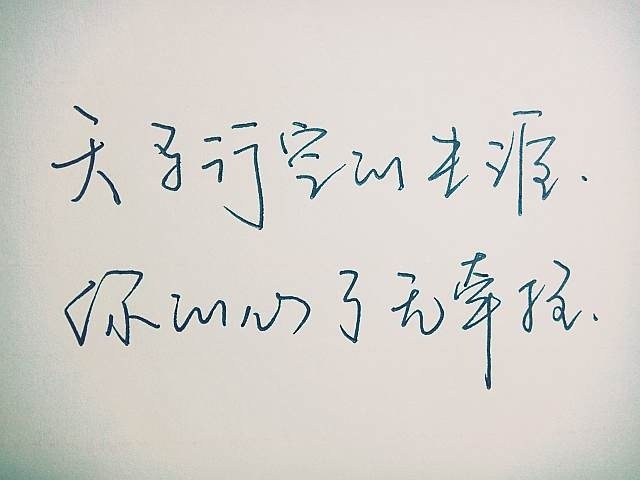 天马行空的生涯.
你的心了无牵挂.